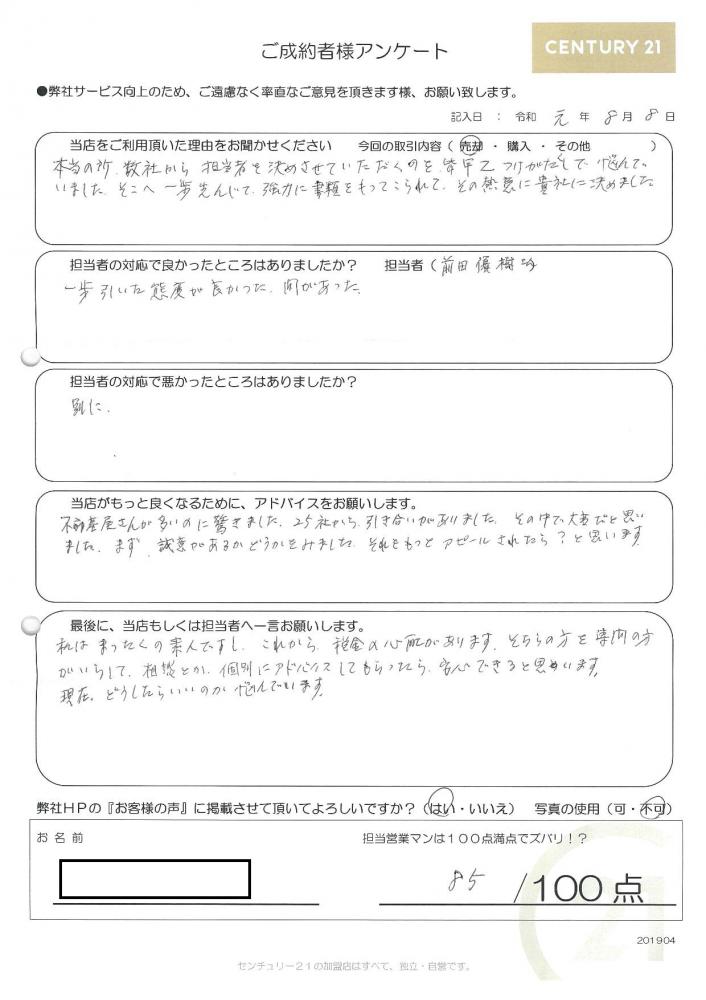 ご成約者様アンケート
CENTURY 21
●弊社サービス向上のため、ご遠慮なく率直なご意見を頂きます様、お願い致します。
記入日 : 令和 元 年 8 月 8 日
当店をご利用頂いた理由をお聞かせください 今回の取引内容 ( 売却 ・ 購入 ・ その他 )
本当の所、数社から担当者を決めさせていただくのを、皆甲乙つけがたしで悩んで
いました。そこへ一歩先んじて、強力に書類をもってこられて、その熱意に貴社に決めました
担当者の対応で良かったところはありましたか? 担当者 ( 前田 優樹
一歩引いた態度が良かった、間があった。
担当者の対応で悪かったところはありましたか?
別に.
当店がもっと良くなるために、アドバイスをお願いします。
不動産屋さんが多いのに驚きました。25社から引き合いがありました。その中で大変だと思い
ました。まず、誠意があるかどうかをみました。それをもっとアピールされたら?と思います
最後に、当店もしくは担当者へ一言お願いします。
私はまったくの素人ですし、これから、税金の心配があります。そちらの方を専門の方
がいらして、相談とか、個別にアドバイスしてもらったら、安心できると思います。
現在、どうしたらいいのか悩んでいます。
弊社HPの『お客様の声』に掲載させて頂いてよろしいですか?(はい・いいえ) 写真の使用(可・不可)
お名前
担当営業マンは100点満点でズバリ!?
85 /100点
201904
センチュリー21の加盟店はすべて、独立・自営です。